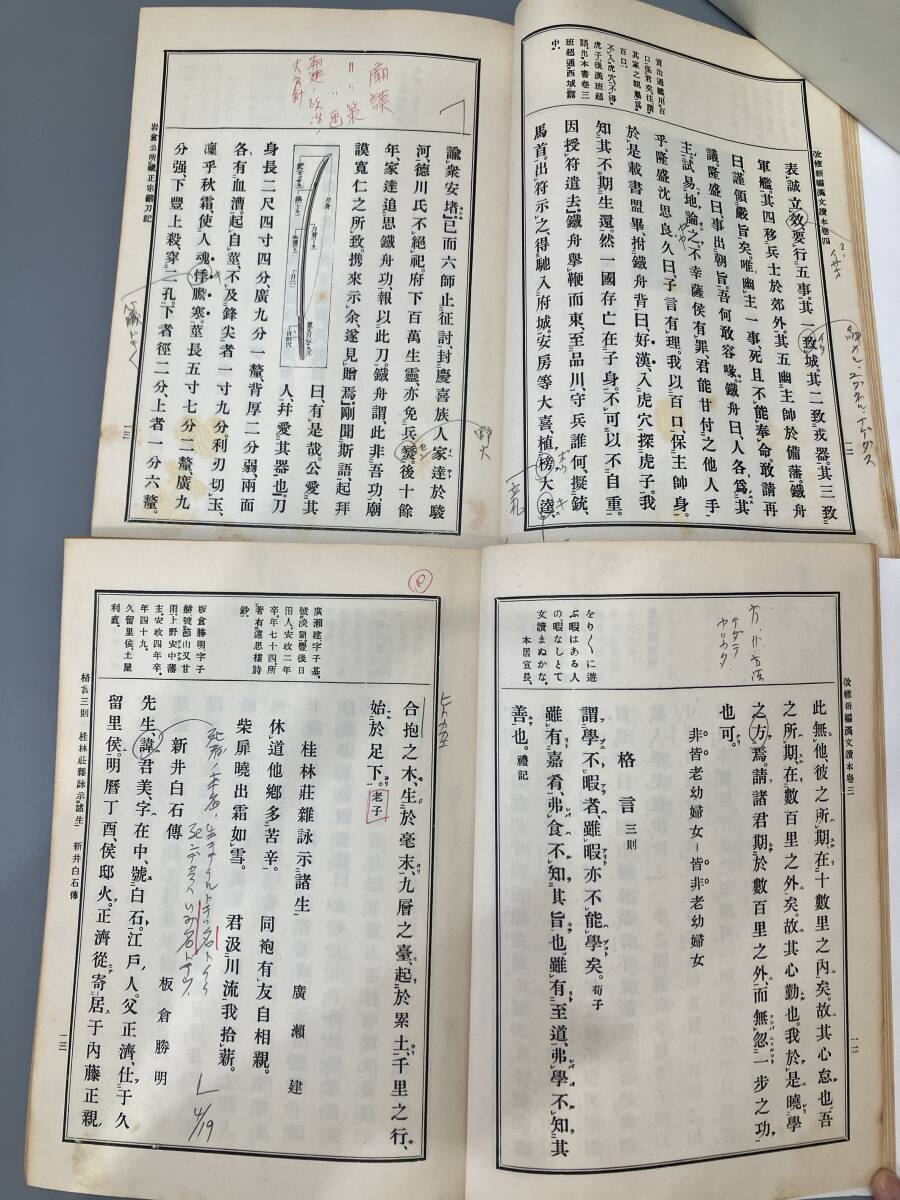 改修新編漢文讀本卷四
資治通鑑用百
口保君矣、注謂
其家之親屬爲
百口。
不入虎穴、不得
虎子、後漢班超
語、出本書卷三
班超通西域篇
中。
表誠立效、要行五事。其一致城。其二致戎器。其三致
軍艦。其四移兵士於郊外。其五幽主帥於備藩。鐵舟
曰、謹領嚴旨矣。唯幽主一事、死且不能奉命。敢請再
議。隆盛曰、事出朝旨。吾何敢容喙。鐵舟曰、人各爲其
主。試易地論之、不幸薩侯有罪、君能甘付之他人手
乎。隆盛沈思良久曰、子言有理。我以百口保主帥身。
於是載書盟畢、拊鐵舟背曰、好漢、入虎穴探虎子。我
知其不期生還。然一國存亡在子身。不可以不自重。
因授符遣去。鐵舟擧鞭而東、至品川、守兵誰何、擬銃
馬首。出符示之、得馳入府城。安房等大喜、植榜大逵、
二
廟謨
〃策
〃画
大方針
諭衆安堵。已而六師止征討、封慶喜族人家達於駿
河、德川氏不絕祀。府下百萬生靈亦免兵燹。後十餘
年、家達追思鐵舟功、報以此刀。鐵舟謂、此非吾功、廟
謨寬仁之所致。携來示余、遂見贈焉。剛聞斯語、起拜
曰、有是哉。公愛其
人、幷愛其器也。刀
刀身
身長二尺四寸四分、廣九分一釐、背厚二分弱、兩面
各有血漕。起自莖、不及鋒尖者一寸九分。利刃切玉、
凜乎秋霜、使人魂悸膽寒。莖長五寸七分二釐、廣九
分强、下豐上殺、穿二孔。下者徑二分、上者一分六釐。
岩倉公所藏正宗鍛刀記
三
改修新編漢文讀本卷三
方ハ方法
テダテ
ヤリカタ
此無他、彼之所期、在十數里之內矣。故其心怠也。吾
之所期、在數百里之外矣。故其心勤也。我於是曉學
之方焉。請諸君期於數百里之外、而無忽一步之功
也可。
非皆老幼婦女—皆非老幼婦女
をり〱に遊
ぶ暇はある人
の暇なしとて
文讀まぬかな。
本居宣長。
格言 三則
謂學不暇者、雖暇亦不能學矣。荀子
雖有嘉肴、弗食不知其旨也。雖有至道、弗學不知其
善也。禮記
一二
合抱之木、生於毫末、九層之臺、起於累土、千里之行、
始於足下。老子
廣瀨建字子基、
號淡窗、豐後日
田人、安政二年
卒、年七十四、所
著有遠思樓詩
鈔。
桂林莊雜詠示諸生 廣瀨建
休道他鄕多苦辛。 同袍有友自相親。
柴扉曉出霜如雪。 君汲川流我拾薪。
板倉勝明字子
赫、號節山、又甘
雨、上野安中藩
主、安政四年卒、
年四十九。
久留里侯、土屋
利直。
新井白石傳 板倉勝明
4/19
先生諱君美、字在中、號白石。江戶人。父正濟、仕于久
留里侯。明曆丁酉、侯邸火。正濟從寄居于內藤正親
格言三則 桂林莊雜詠示諸生 新井白石傳
一三